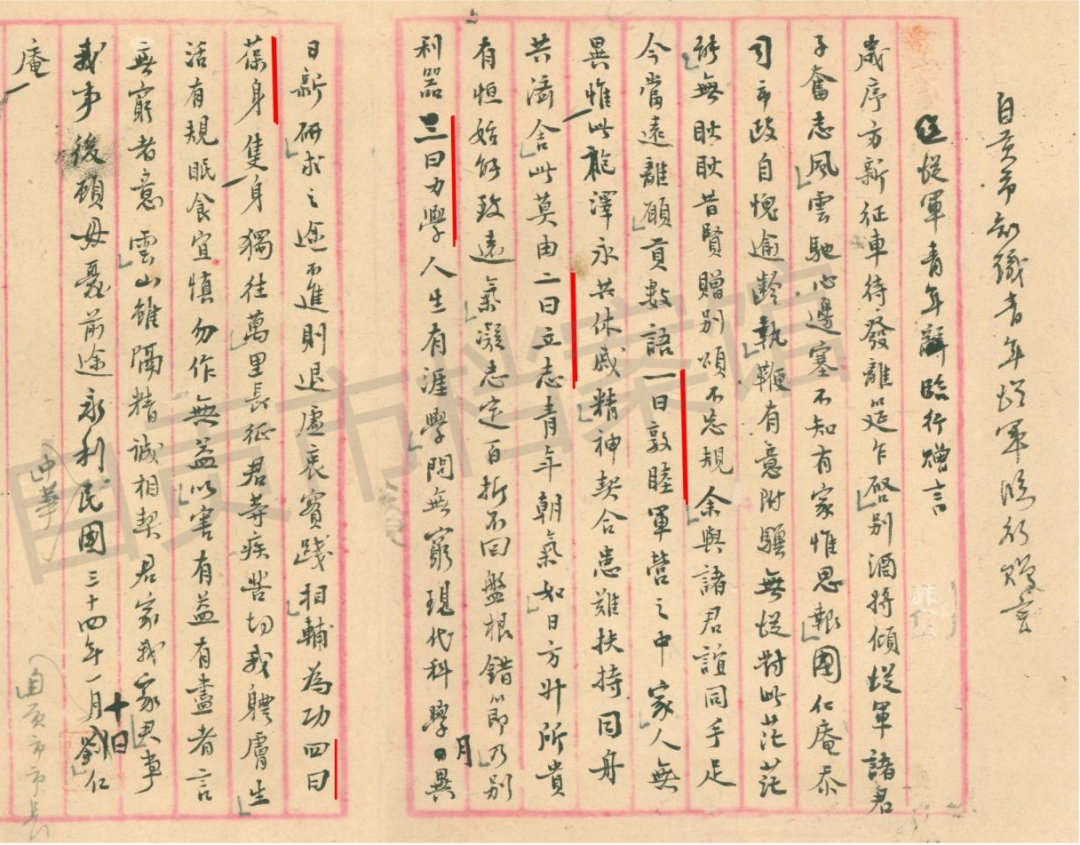 自贡市知识青年從軍临行赠言
送從軍青年辭臨行贈言
歲序方新征車待發離筵乍啓别酒將傾從軍諸君
子奮志風雲馳心邊塞不知有家惟思報國仁庵忝
司市政自愧逾齡執鞭有意附驥無從對此茫茫
能無耿耿昔賢贈别頌不忘規余與諸君誼同手足
今當遠離願貢數語一曰敦睦軍營之中家人無
異惟此袍澤永共休戚精神契合患難扶持同舟
共濟舍此莫由二曰立志青年朝氣如日方升所貴
有恒始能致遠氣凝志定百折不回盤根錯節乃别
利器三曰力學人生有涯學問無窮現代科學日異月
日新研求之途不進則退虛衷實踐相輔為功四曰
葆身隻身獨往萬里長征君等疾苦切我體膚生
活有規眠食宜慎勿作無益以害有益有盡者言
無窮者意雲山雖隔精誠相契君家我家君事
我事後顧毋憂前途永利民國三十四年一月十日劉仁
庵
自贡市市長
自贡市档案馆